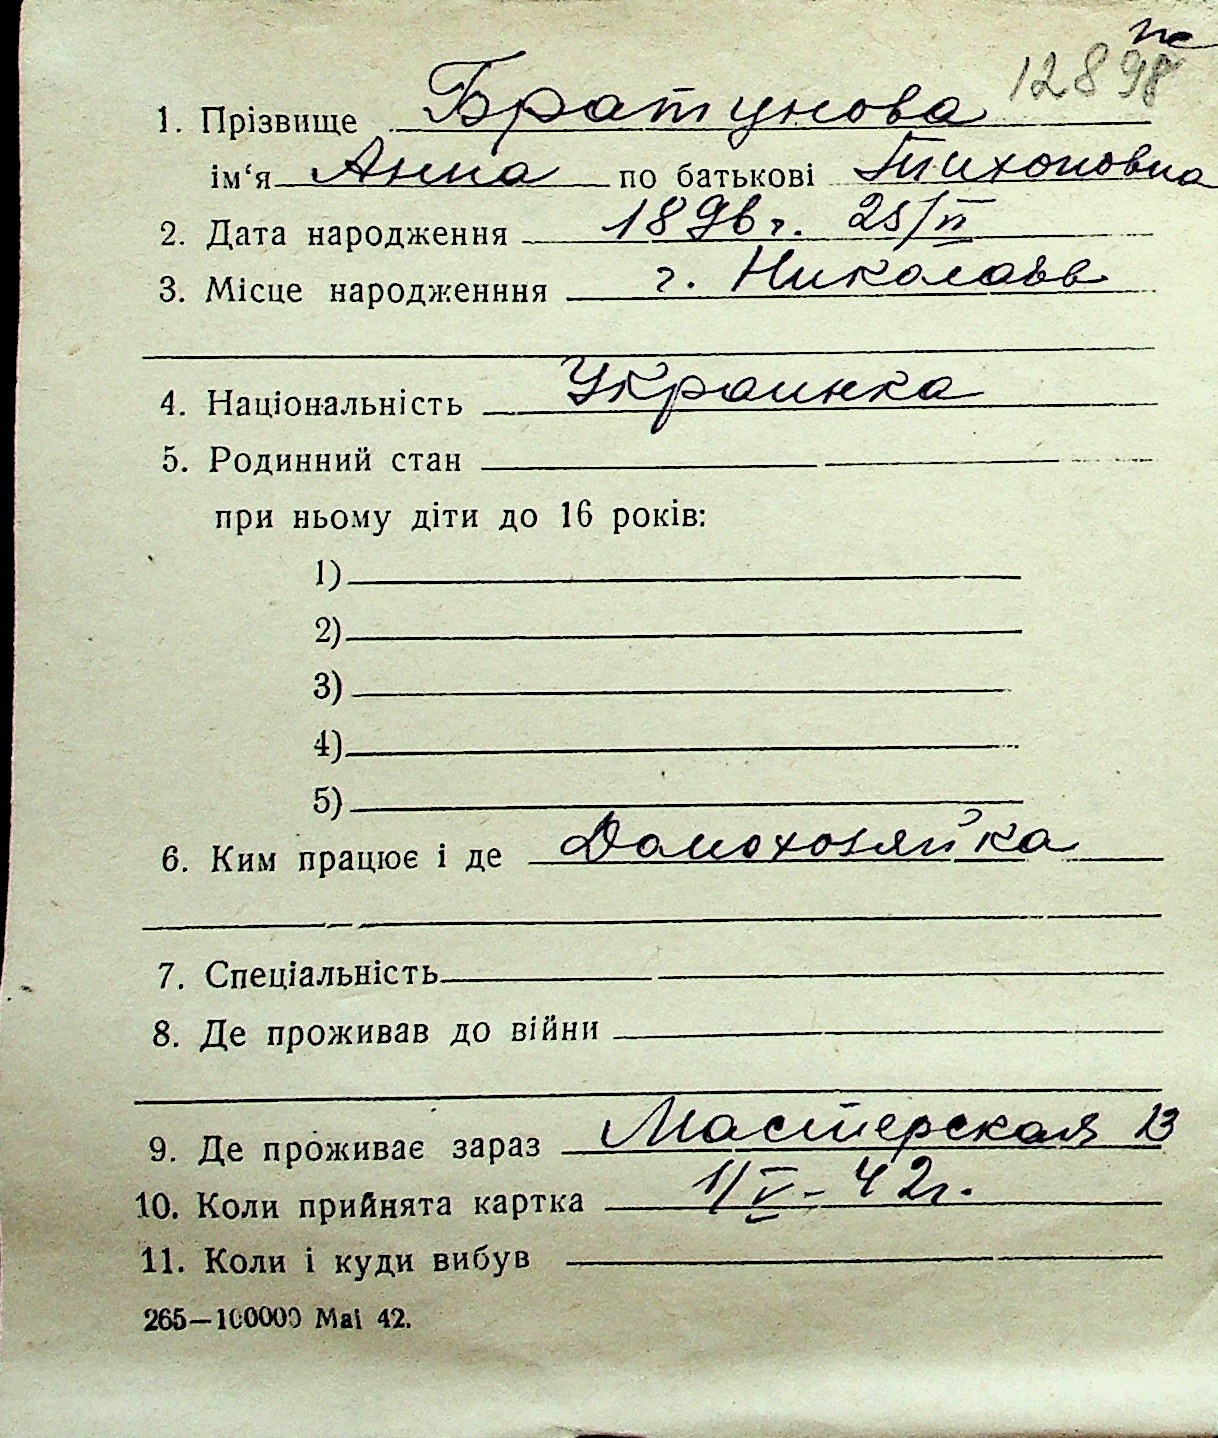 12898
1. Прізвище Братунова
ім‘я Анна по батькові Тихоновна
2. Дата народження 1896 г. 25/II
3. Місце народженння г. Николаев
4. Національність Украинка
5. Родинний стан
при ньому діти до 16 років:
1)
2)
3)
4)
5)
6. Ким працює і де Домохозяйка
7. Спеціальність
8. Де проживав до війни
9. Де проживає зараз Мастерская 13
10. Коли прийнята картка 1/V - 42г.
11. Коли і куди вибув
265—100000 Mai 42.